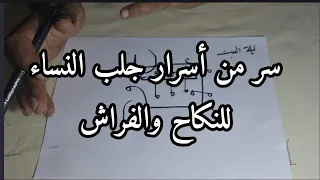 ليلة السبت
سر من أسرار جلب النساء
للنكاح والفراش